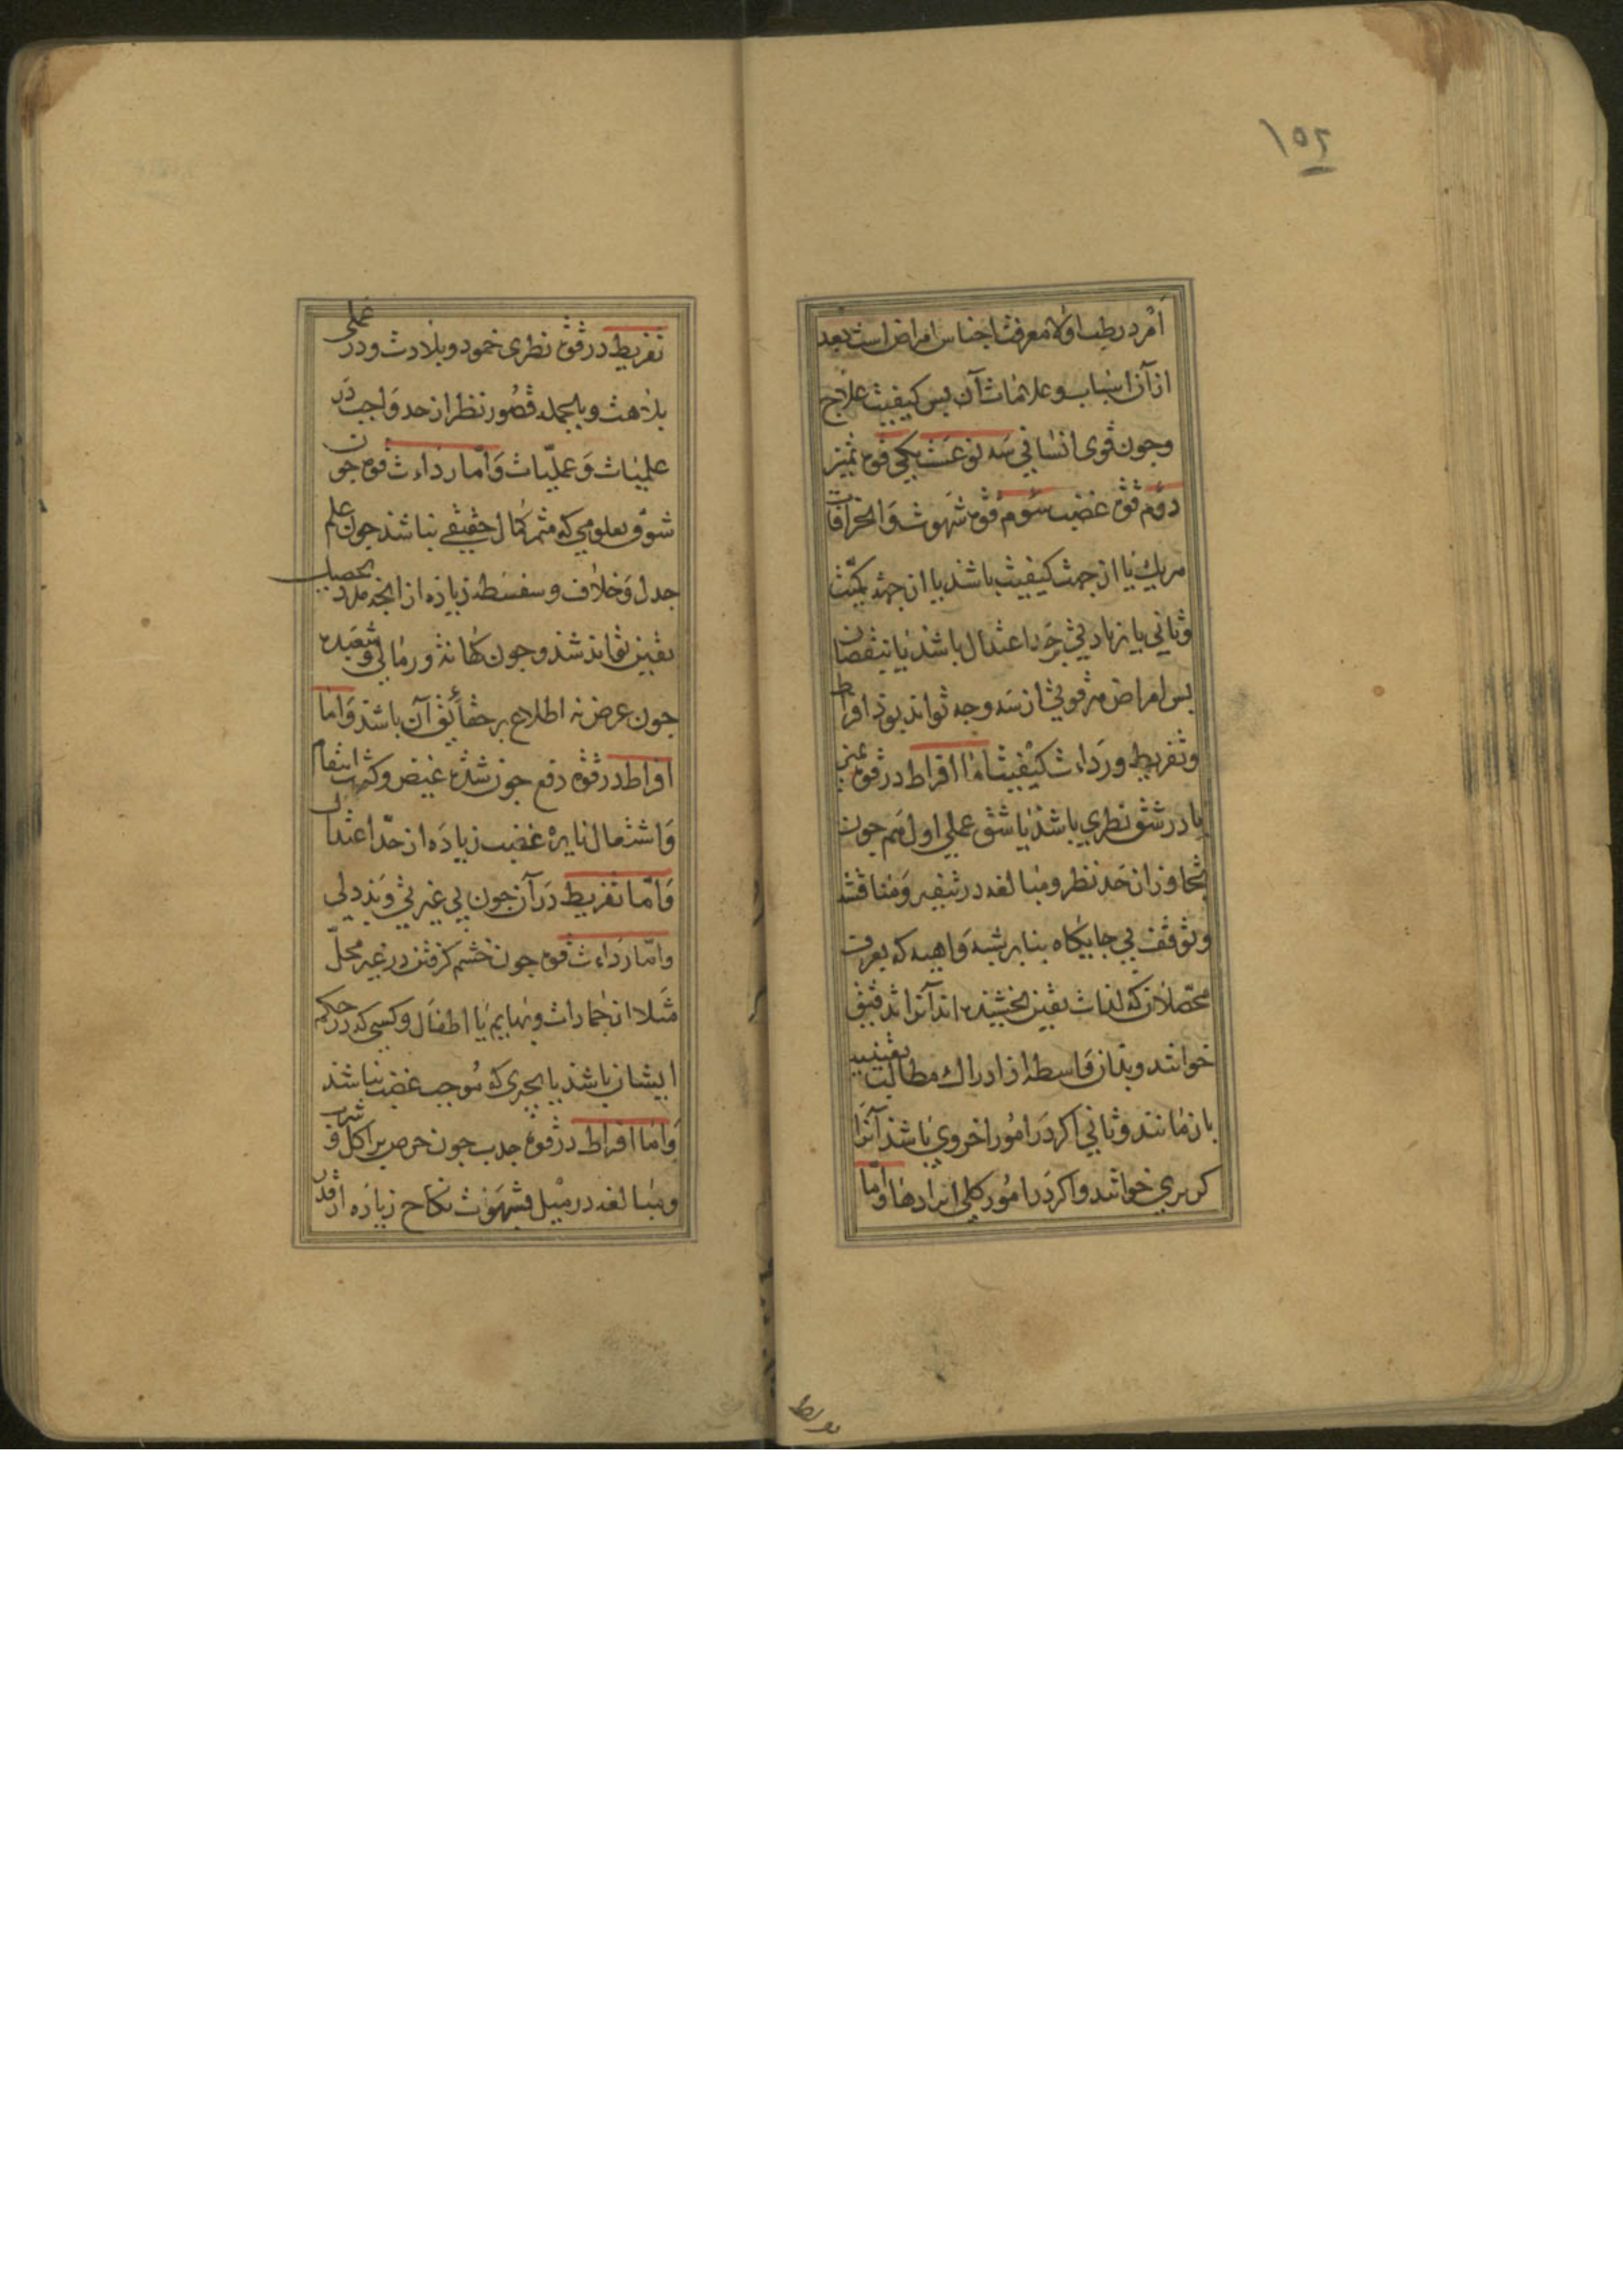 ۱۵۲
امر در طب اولا معرفت اجناس امراض است بعد
از آن اسباب و علامات آن بس کیفیت علاج
وجون قوی انسانی سه نوعست یکی قوه تمیز
دوم قوة غضب سوم قوه شهوت و انحرافات
هر یك یا از جهت کیفیت باشد یا از جهة کمیت
وثانی یا بزیادتی بر حد اعتدال باشد یا بنقصان
بس امراض هر قوتی از سه وجه تواند بود افراط
و تفریط و رداءت کیفیت اما افراط در قوه تمیز
یا در شق نظری باشد یا شق عملی اول هم جون
تجاوز از حد نظر و مبالغه در تنقیر و مناقشه
و توقف بی جایکاه بنا بر شبه واهیه که بعرف
محصلان که لذات یقین نجشیده اند آنرا تدقیق
خوانند و بدان واسطه از ادراك مطالب یقینیه
باز مانند و ثانی اکر در امور اخروی باشد آنرا
کربزی خوانند و اکر در امور کلی انرا دها و اما
تفریط
تفریط در قوة نظری خمود و بلادت و در عملی
بلاهت و بالجمله قصور نظر از حد واجب در
علمیات و عملیات و اما رداءت قوه جون
شوق بعلومی که مثمر کمال حقیقے نباشد جون علم
جدل و خلاف و سفسطه زیاده از انجه مدد تحصیل
یقین تواند شد و جون کهانة و رمالی و شعبده
جون عرض نه اطلاع بر حقائق آن باشد و اما
افراط در قوه دفع جون شدة غیض و کثرت انتقام
و اشتعال نایرهٔ غضب زیاده از حد اعتدال
و اما تفریط در آن جون بی غیرتی و بد دلی
و اما رداءت قوه جون خشم کرفتن در غیر محل
مثلا از جمادات و بهایم یا اطفال و کسی که در حکم
ایشان باشد یا بجیزی که موجب غضب نباشد
و اما افراط در قوه جذب جون حرص بر اکل و شرب
و مبالغه در میل و شهوت نکاح زیاده از قدر